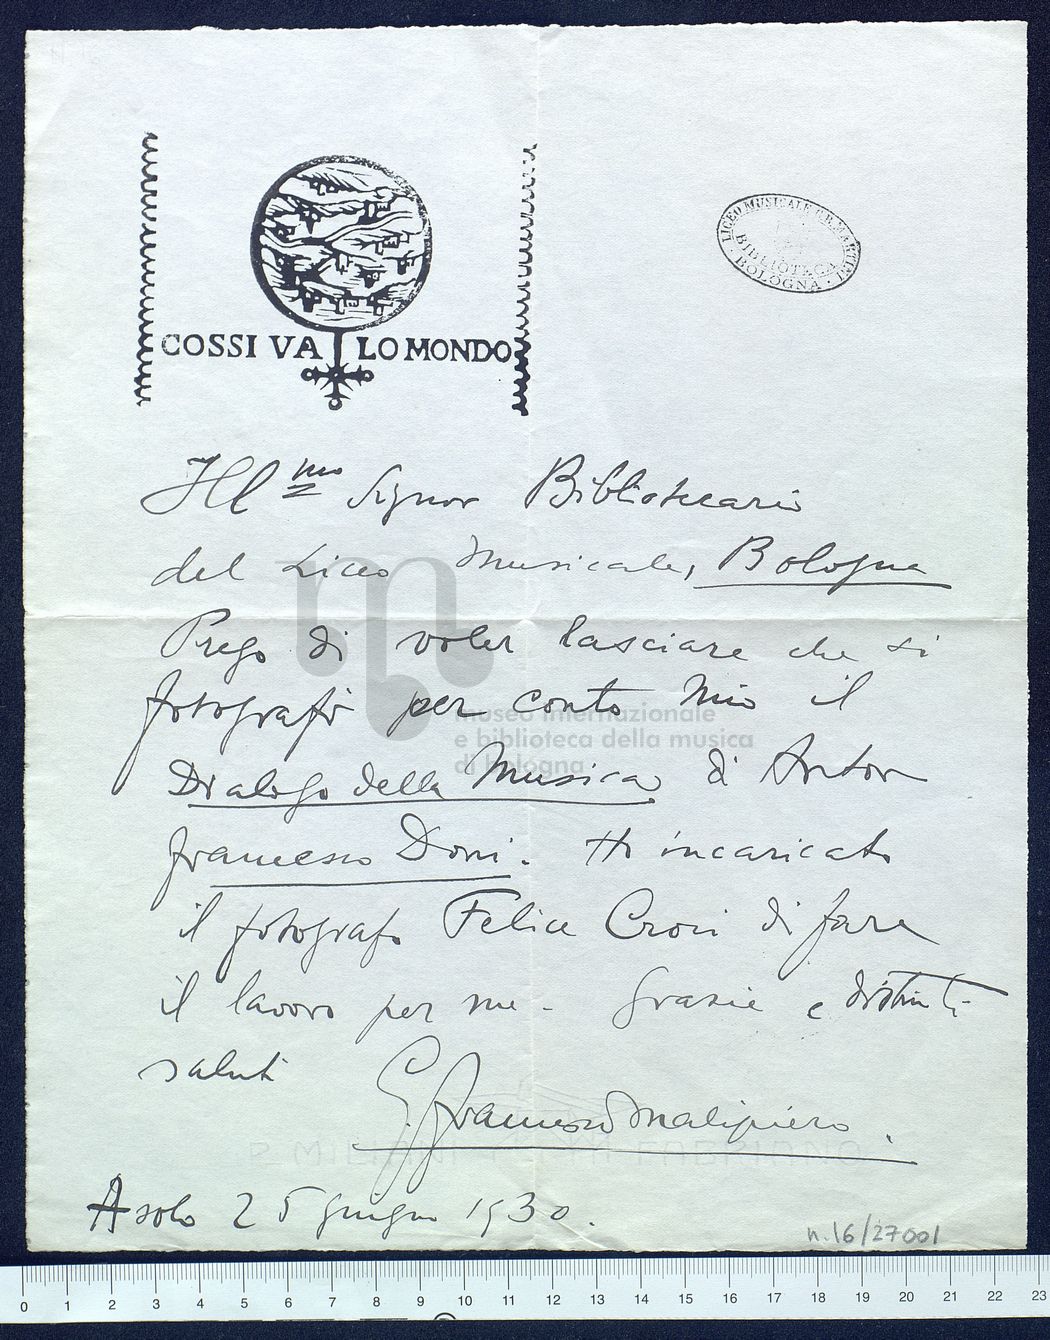 COSSI VA LO MONDO
LICEO MUSICALE G.B. MARTINI
BIBLIOTECA
BOLOGNA
Ill.mo Signor Bibliotecario
del Liceo Musicale, Bologna
Prego di voler lasciare che si
fotografi per conto mio il
museo internazionale
e biblioteca della musica
di bologna
Dialogo della Musica di Anton
Francesco Doni. Ho incaricato
il fotografo Felice Croci di fare
il lavoro per me - Grazie e distinti
saluti
G. Francesco Malipiero.
P. MILIANI FABRIANO
Asolo 25 giugno 1930.
n. 16/27001
0 1 2 3 4 5 6 7 8 9 10 11 12 13 14 15 16 17 18 19 20 21 22 23